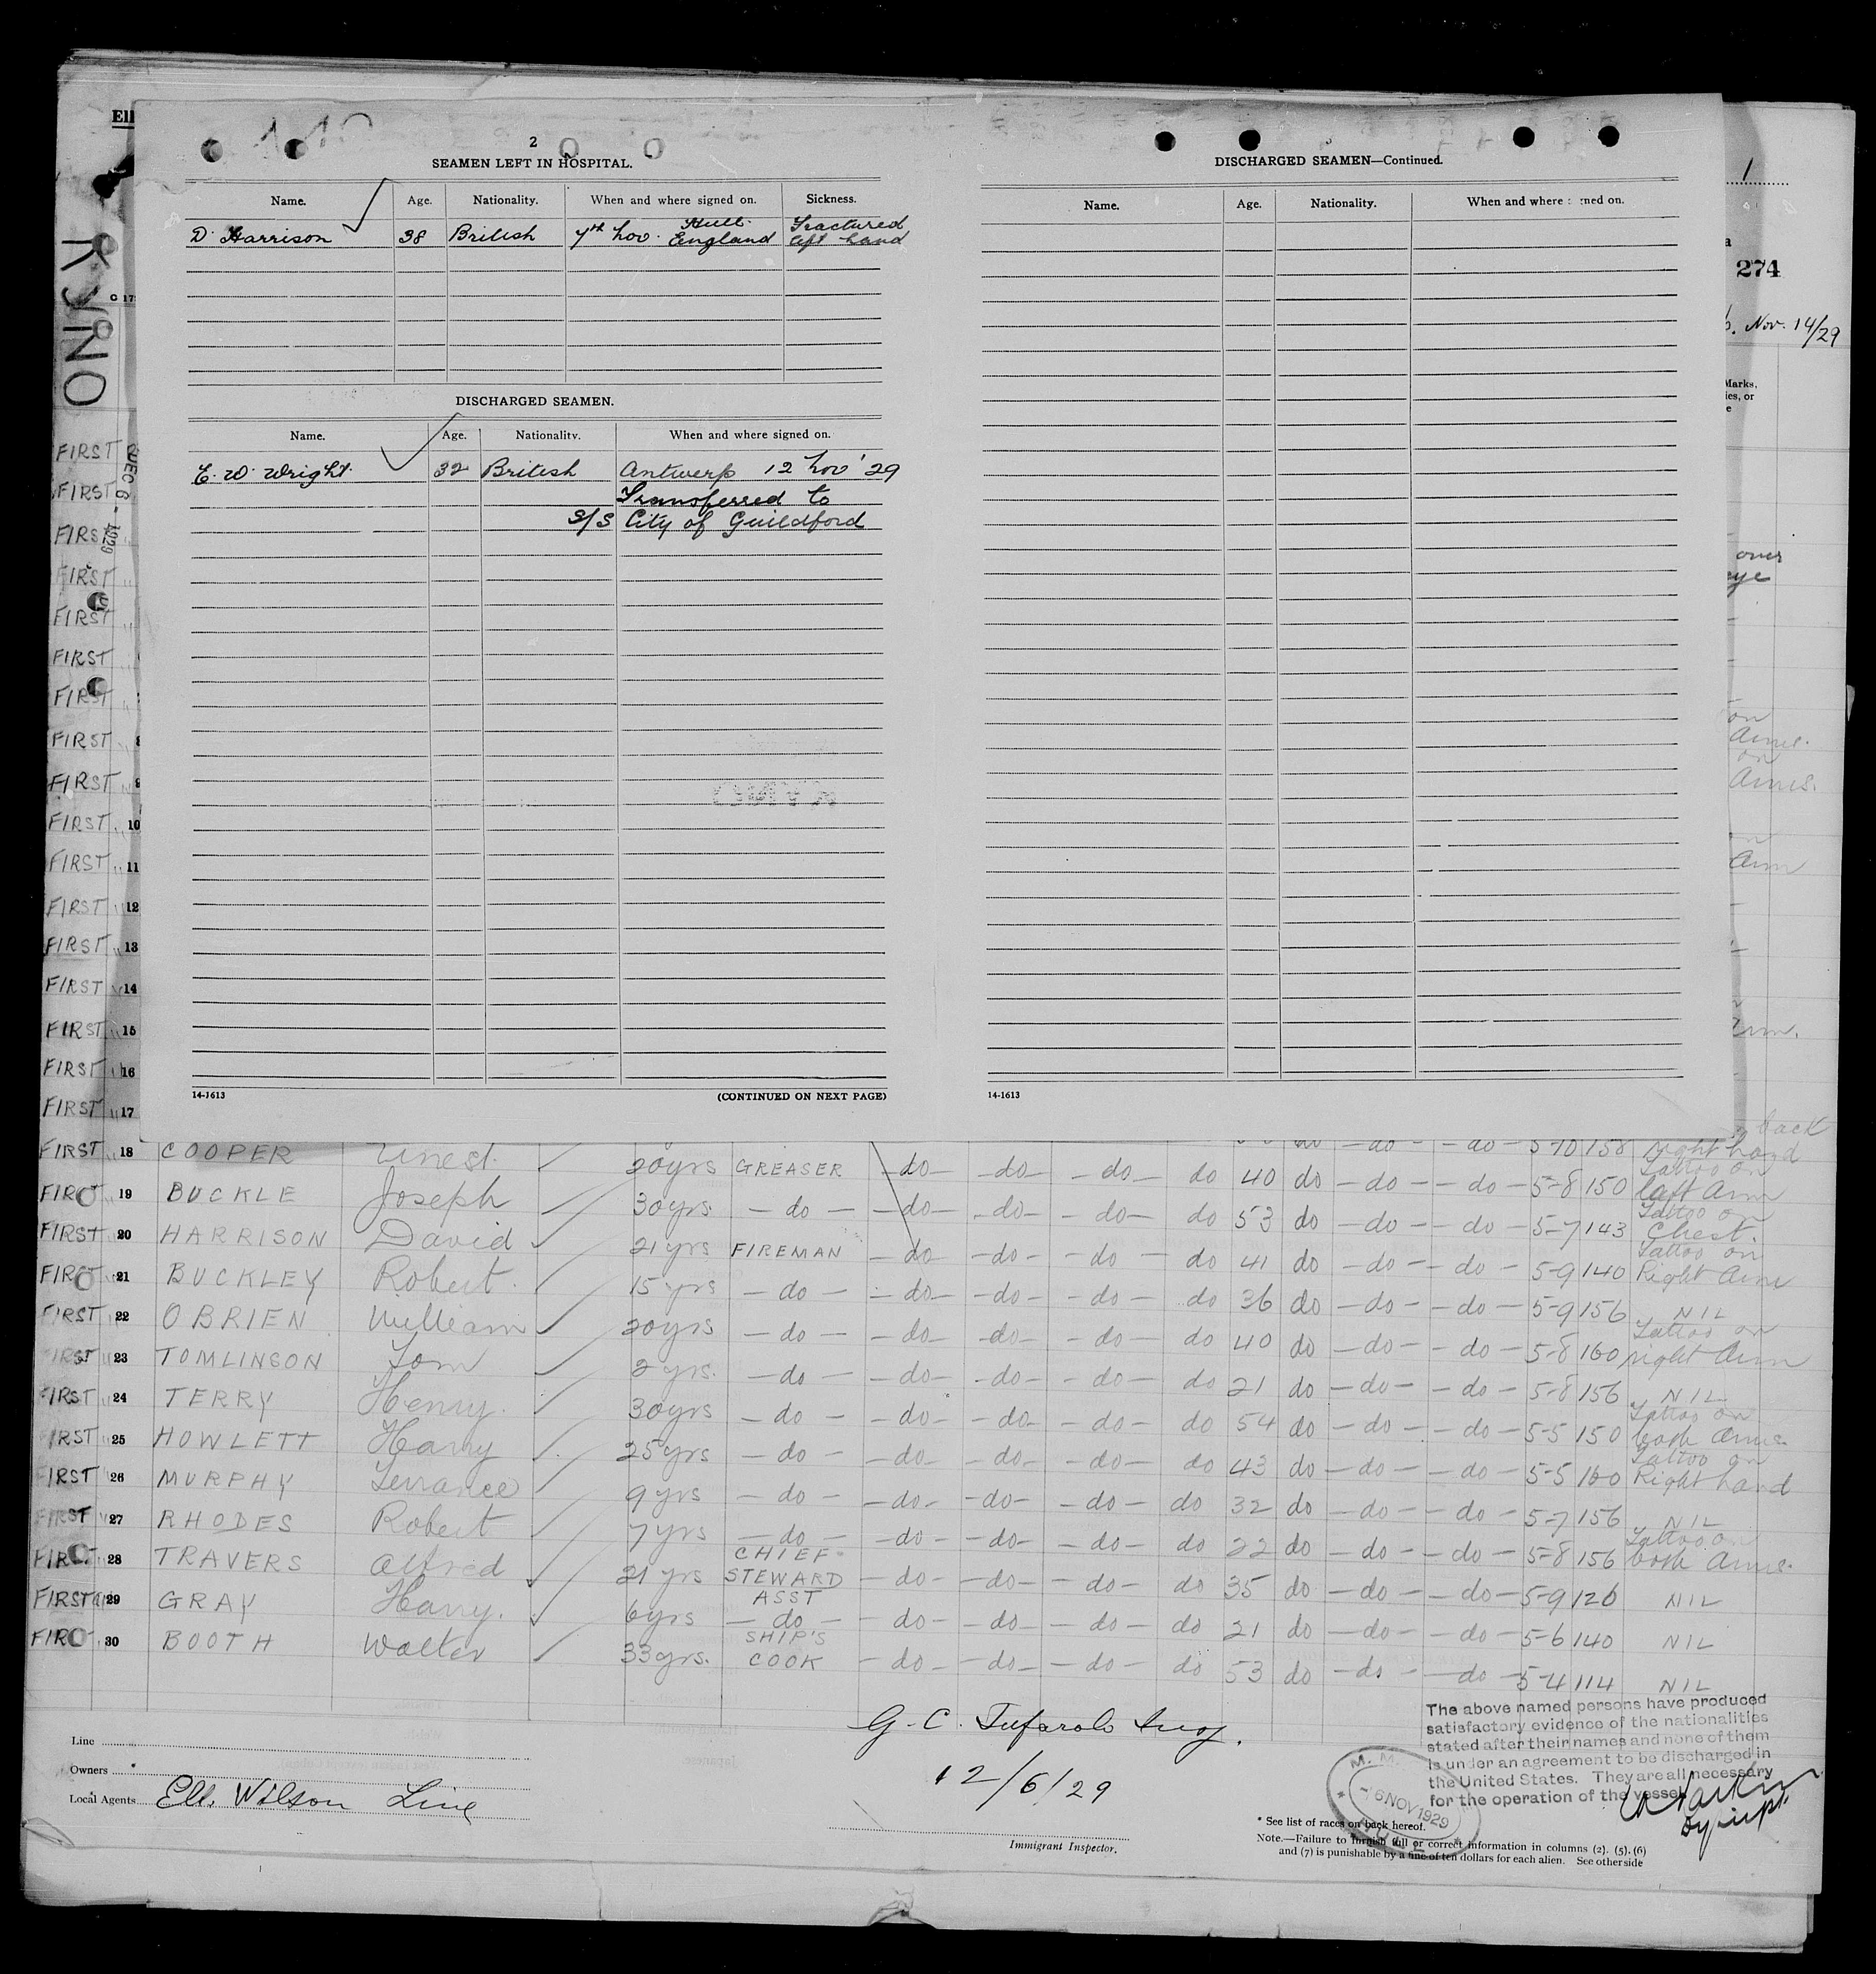 2
SEAMEN LEFT IN HOSPITAL.
Name. Age. Nationality. When and where signed on. Sickness.
D. Harrison 38 British 7th Nov. Hull England Fractured left hand
DISCHARGED SEAMEN.
Name. Age. Nationality. When and where signed on.
E. W. Wright. 32 British Antwerp 12 Nov '29
Transferred to
S/S City of Guildford
14-1613 (CONTINUED ON NEXT PAGE)
DISCHARGED SEAMEN—Continued.
Name. Age. Nationality. When and where signed on.
14-1613
Ell
KYNO
DEC 6 - 1929
1
274
Nov. 14/29
Marks,
ies, or
e
over
eye
on
Arms.
on
Arms.
Arm
back
FIRST
FIRST
FIRST
FIRST
FIRST
FIRST
FIRST
FIRST 8
FIRST 9
FIRST 10
FIRST 11
FIRST 12
FIRST 13
FIRST 14
FIRST 15
FIRST 16
FIRST 17
FIRST 18 COOPER Ernest. do -do- -do- 5-10 158 right hand
FIRST 19 BUCKLE Joseph 20yrs GREASER -do- -do- -do- do 40 do -do- -do- 5-8 150 Tattoo on left Arm
FIRST 20 HARRISON David 30yrs -do- -do- -do- -do- do 53 do -do- -do- 5-7 143 Tattoo on Chest.
FIRST 21 BUCKLEY Robert. 21yrs FIREMAN -do- -do- -do- do 41 do -do- -do- 5-9 140 Tattoo on Right Arm
FIRST 22 OBRIEN William 15yrs -do- -do- -do- -do- do 36 do -do- -do- 5-9 156 NIL
FIRST 23 TOMLINSON Tom 20yrs -do- -do- -do- -do- do 40 do -do- -do- 5-8 160 Tattoo on right Arm
FIRST 24 TERRY Henry. 2yrs. -do- -do- -do- -do- do 21 do -do- -do- 5-8 156 NIL
FIRST 25 HOWLETT Harry 30yrs -do- -do- -do- -do- do 54 do -do- -do- 5-5 150 Tattoo on both Arms.
FIRST 26 MURPHY Terrance 25yrs -do- -do- -do- -do- do 43 do -do- -do- 5-5 160 Tattoo on Right hand
FIRST 27 RHODES Robert 9yrs -do- -do- -do- -do- do 32 do -do- -do- 5-7 156 NIL
FIRST 28 TRAVERS Alfred 7yrs -do- -do- -do- -do- do 22 do -do- -do- 5-8 156 Tattoo on both Arms.
FIRST 29 GRAY Harry. 21yrs CHIEF STEWARD -do- -do- -do- do 35 do -do- -do- 5-9 126 NIL
FIRST 30 BOOTH Walter 6yrs ASST -do- -do- -do- -do- do 21 do -do- -do- 5-6 140 NIL
33yrs. SHIP'S COOK -do- -do- -do- do 53 do -do- -do- 5-4 114 NIL
The above named persons have produced
satisfactory evidence of the nationalities
stated after their names and none of them
is under an agreement to be discharged in
the United States. They are all necessary
for the operation of the vessel
6 NOV 1929
Line
Owners
Local Agents Ell. Wilson Line
12/6/29
Immigrant Inspector.
* See list of races on back hereof.
Note.—Failure to furnish full or correct information in columns (2), (5), (6)
and (7) is punishable by a fine of ten dollars for each alien. See other side